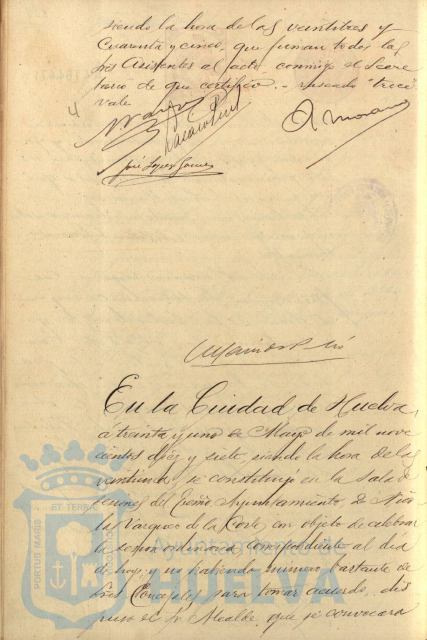 siendo la hora de las veintitres y
cuarenta y cinco, que firman todos los
Sres Asistentes al acto conmigo el Secre
tario de que certifico. - raspado "trece"
vale
José López Gómez
A. Moreno
En la Ciudad de Huelva,
á treinta y uno de Mayo de mil nove
cientos diez y siete, siendo la hora de las
veintiuna, se constituyó en la sala de
sesiones del Excmo Ayuntamiento D. Nico
las Vazquez de la Corte con objeto de celebrar
la sesion ordinaria correspondiente al día
de hoy; y no habiendo número bastante de
Sres Concejales para tomar acuerdo, dis
puso el Sr. Alcalde, que se convocara
PORTUS MARIS ET TERRAE
Ayuntamiento de
HUELVA